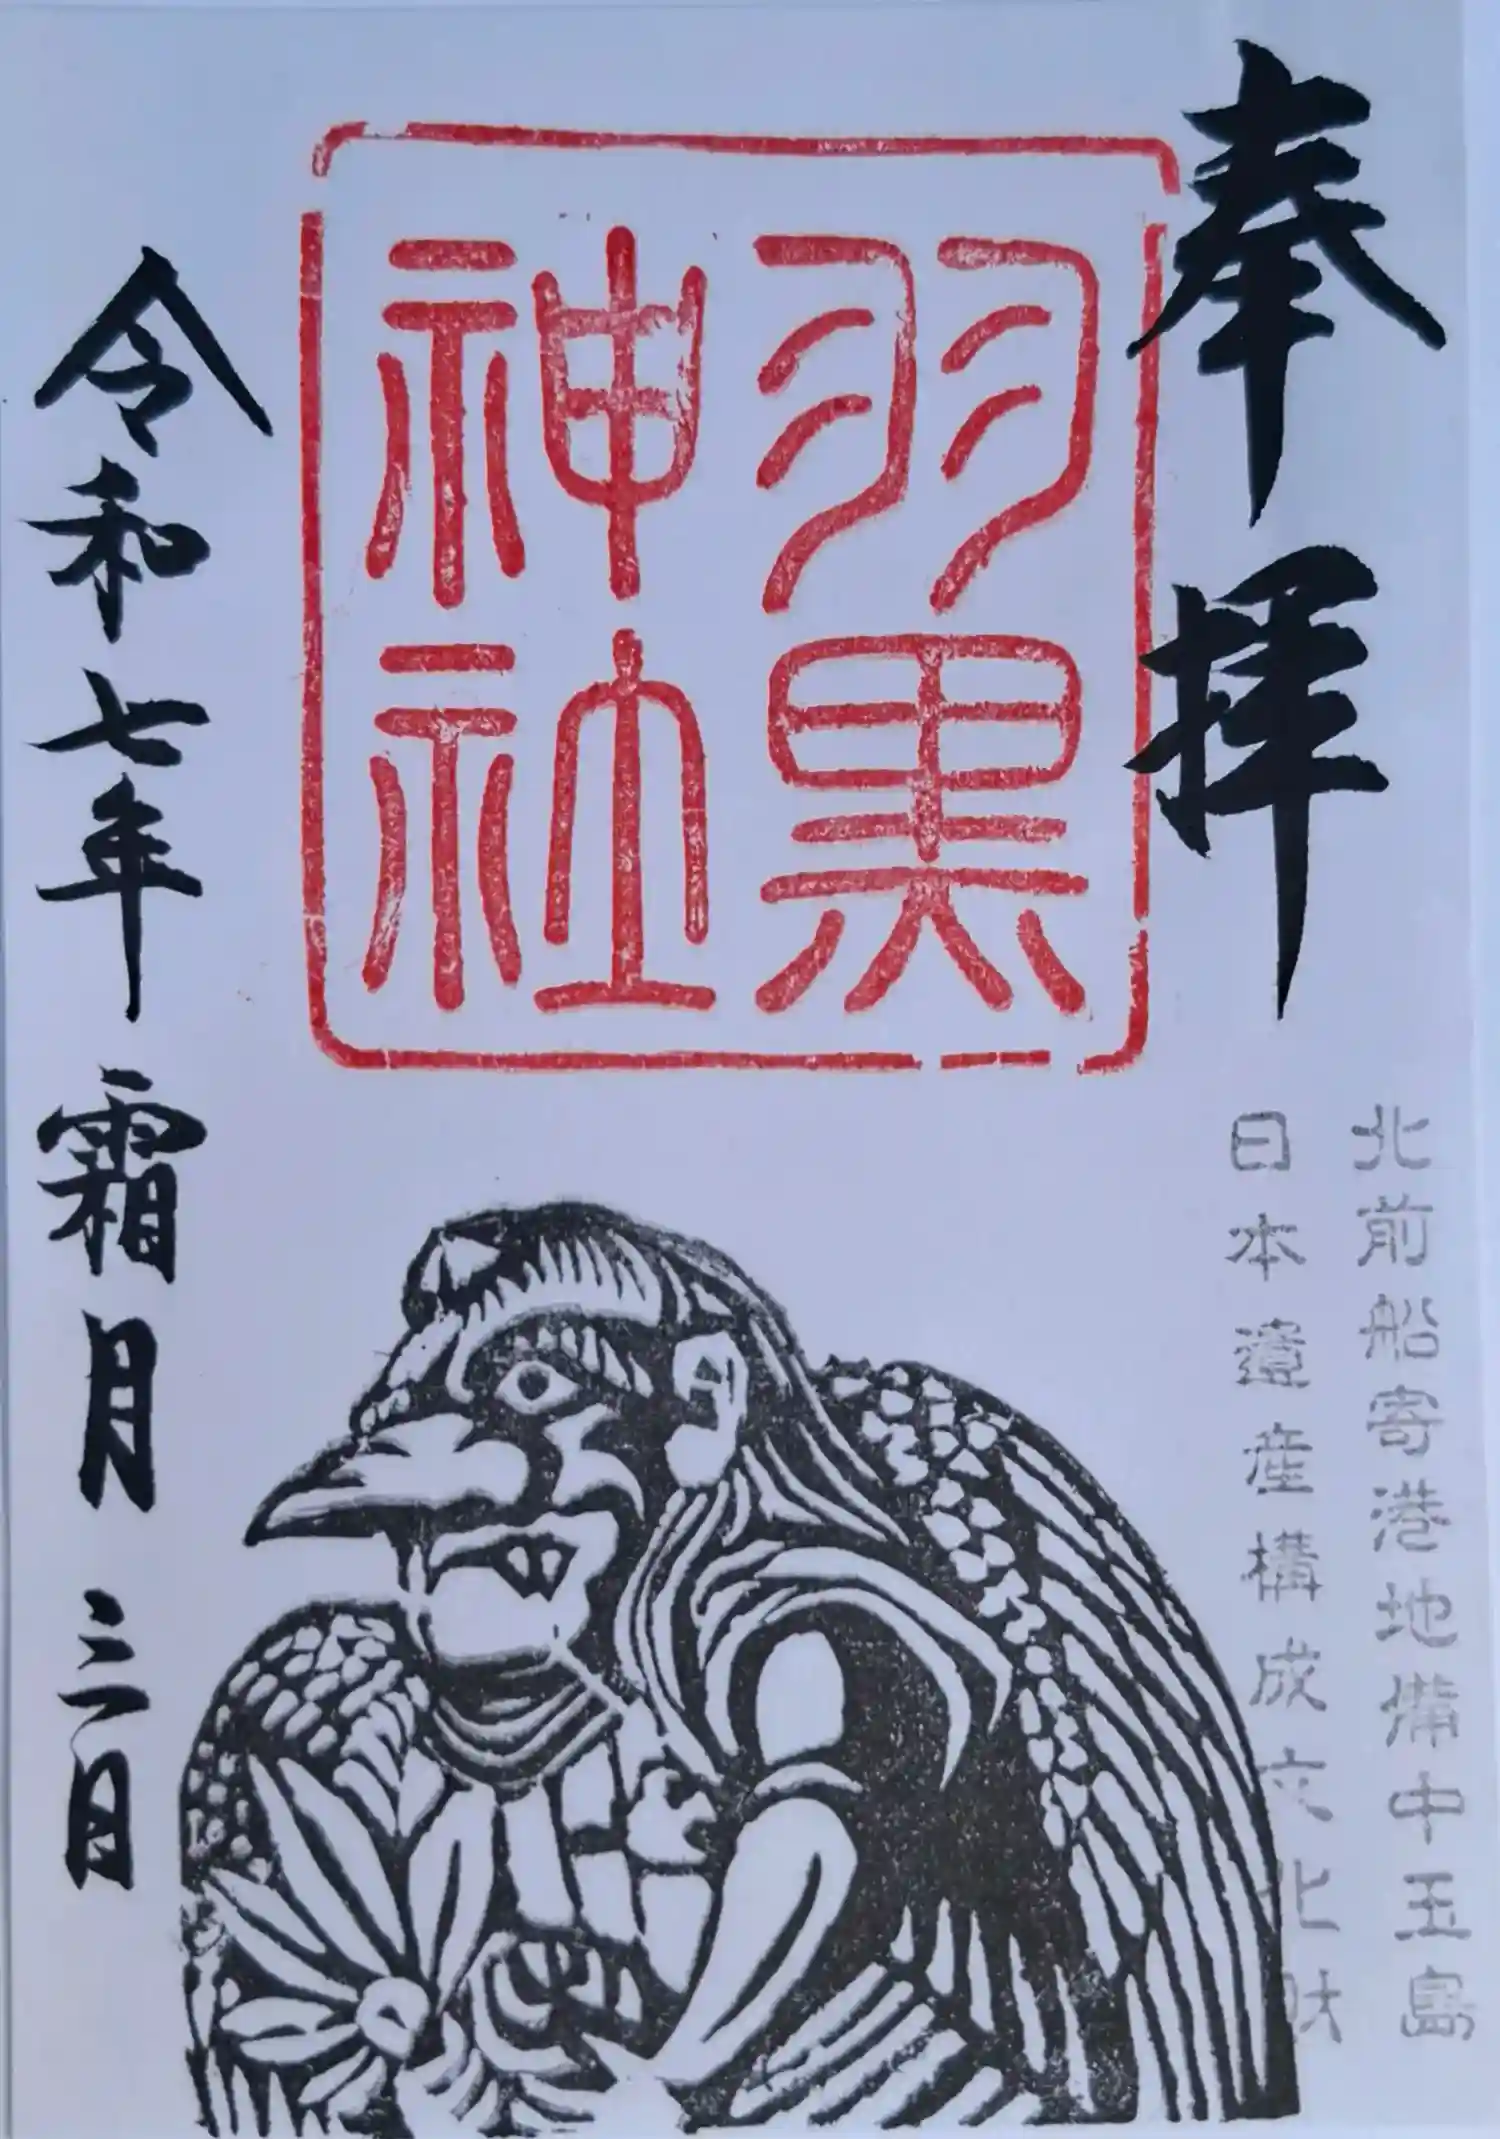 奉拝
羽黒
神社
北前船寄港地備中玉島
日本遺産構成文化財
令和七年霜月三日